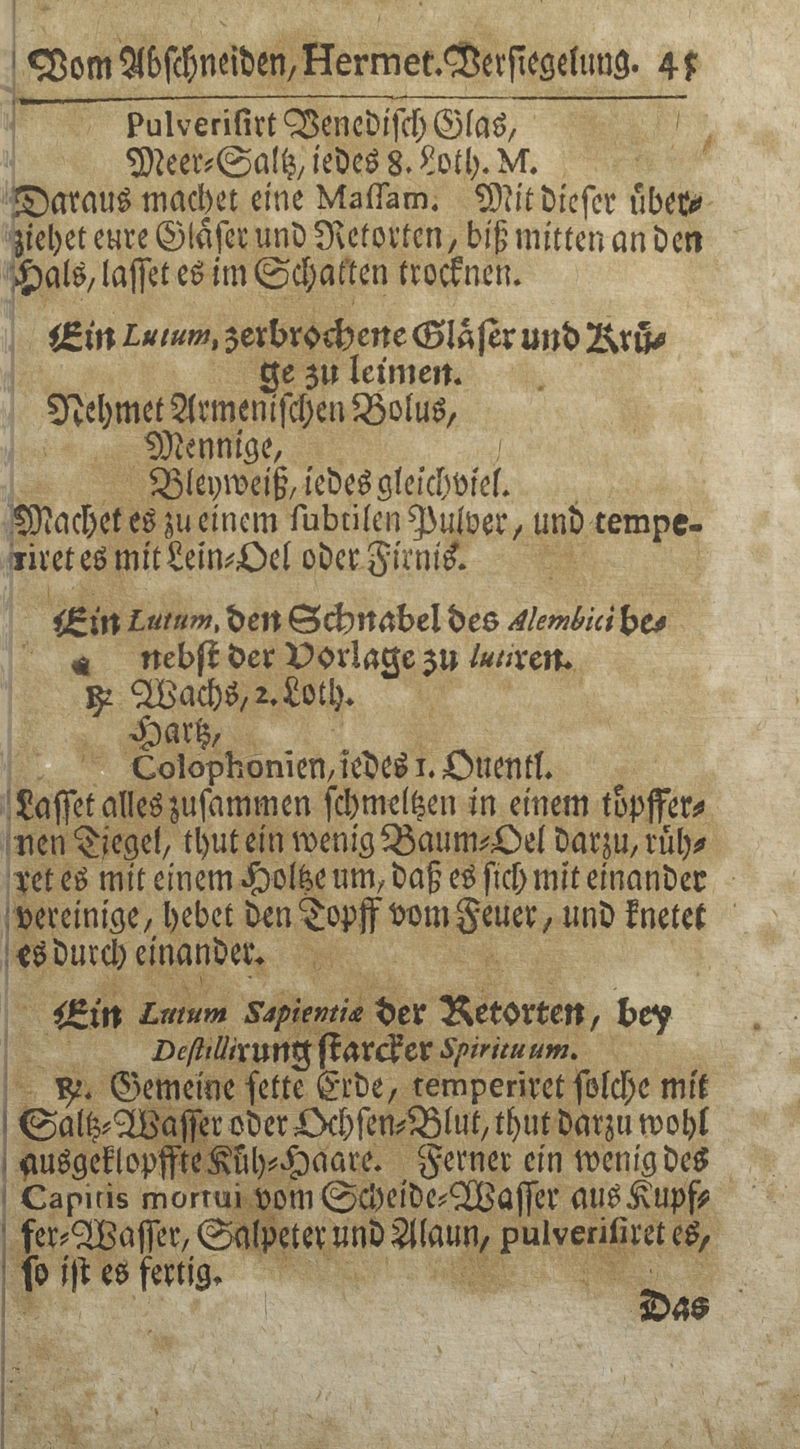 Vom Abſchneiden, Hermet. Verſiegelung. 45
Pulveriſirt Venediſch Glas,
Meer⸗Saltz, iedes 8. Loth. M.
Daraus machet eine Maſſam. Mit dieſer uͤber⸗
ziehet eure Glaͤſer und Retorten, biß mitten an den
Hals, laſſet es im Schatten trocknen.
Ein Lutum, zerbrochene Glaͤſer und Kruͤ⸗
ge zu leimen.
Nehmet Armeniſchen Bolus,
Mennige,
Bleyweiß, iedes gleichviel.
Machet es zu einem ſubtilen Pulver, und tempe-
riret es mit Lein⸗Oel oder Firnis.
Ein Lutum, den Schnabel des Alembici be⸗
nebſt der Vorlage zu lutiren.
℞ Wachs, 2. Loth.
Hartz,
Colophonien, iedes 1. Quentl.
Laſſet alles zuſammen ſchmeltzen in einem toͤpffer⸗
nen Tiegel, thut ein wenig Baum⸗Oel darzu, ruͤh⸗
ret es mit einem Holtze um, daß es ſich mit einander
vereinige, hebet den Topff vom Feuer, und knetet
es durch einander.
Ein Lutum Sapientiæ der Retorten, bey
Deſtillirung ſtarcker Spirituum.
℞. Gemeine fette Erde, temperiret ſolche mit
Saltz⸗Waſſer oder Ochſen⸗Blut, thut darzu wohl
ausgeklopffte Kuͤh⸗Haare. Ferner ein wenig des
Capitis mortui vom Scheide⸗Waſſer aus Kupf⸗
fer⸗Waſſer, Salpeter und Alaun, pulveriſiret es,
ſo iſt es fertig.
Das